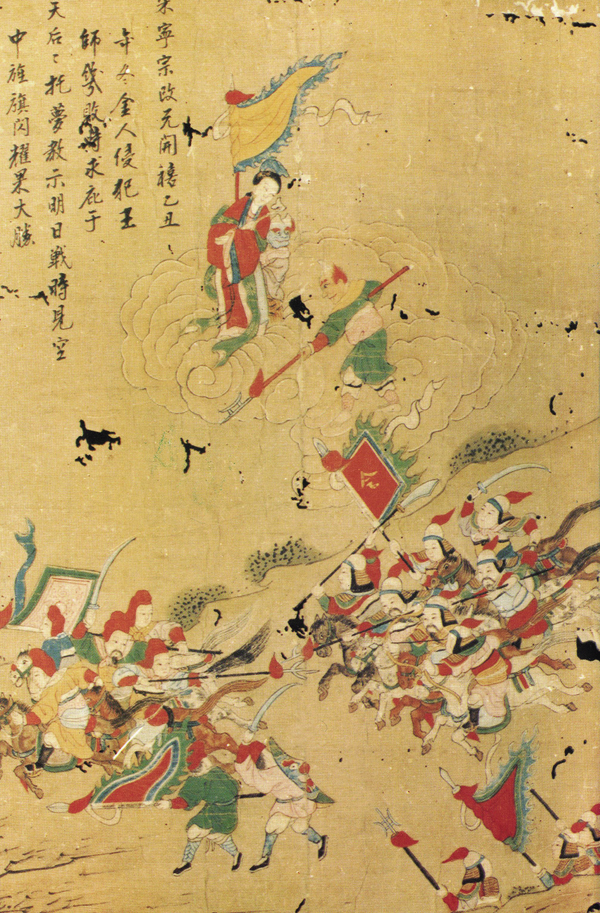 宋寧宗改元開禧乙丑
年冬金人侵犯王
師幾敗求庇于
天后〻托夢教示明日戰時見空
中旌旗閃耀果大勝
令